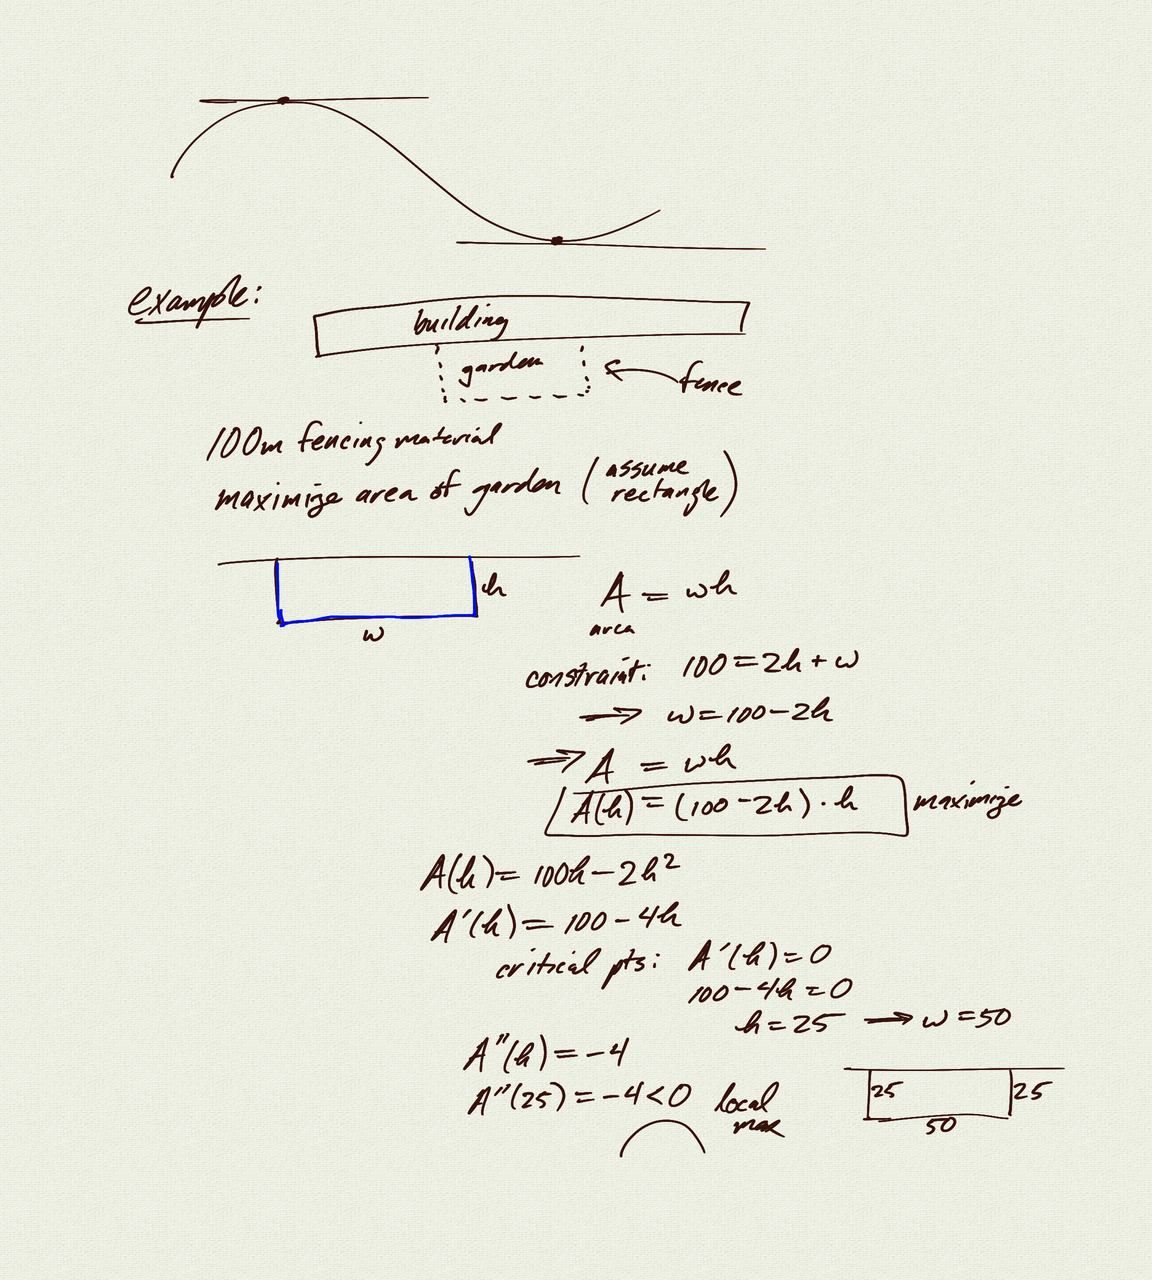 example:
building
garden
fence
100m fencing material
maximize area of garden (assume rectangle)
h
w
A = wh
area
constraint: 100 = 2h + w
⟹ w = 100 - 2h
⟹ A = wh
A(h) = (100 - 2h) · h maximize
A(h) = 100h - 2h²
A'(h) = 100 - 4h
critical pts: A'(h) = 0
100 - 4h = 0
h = 25 → w = 50
A''(h) = -4
A''(25) = -4 < 0 local max
25 25
50